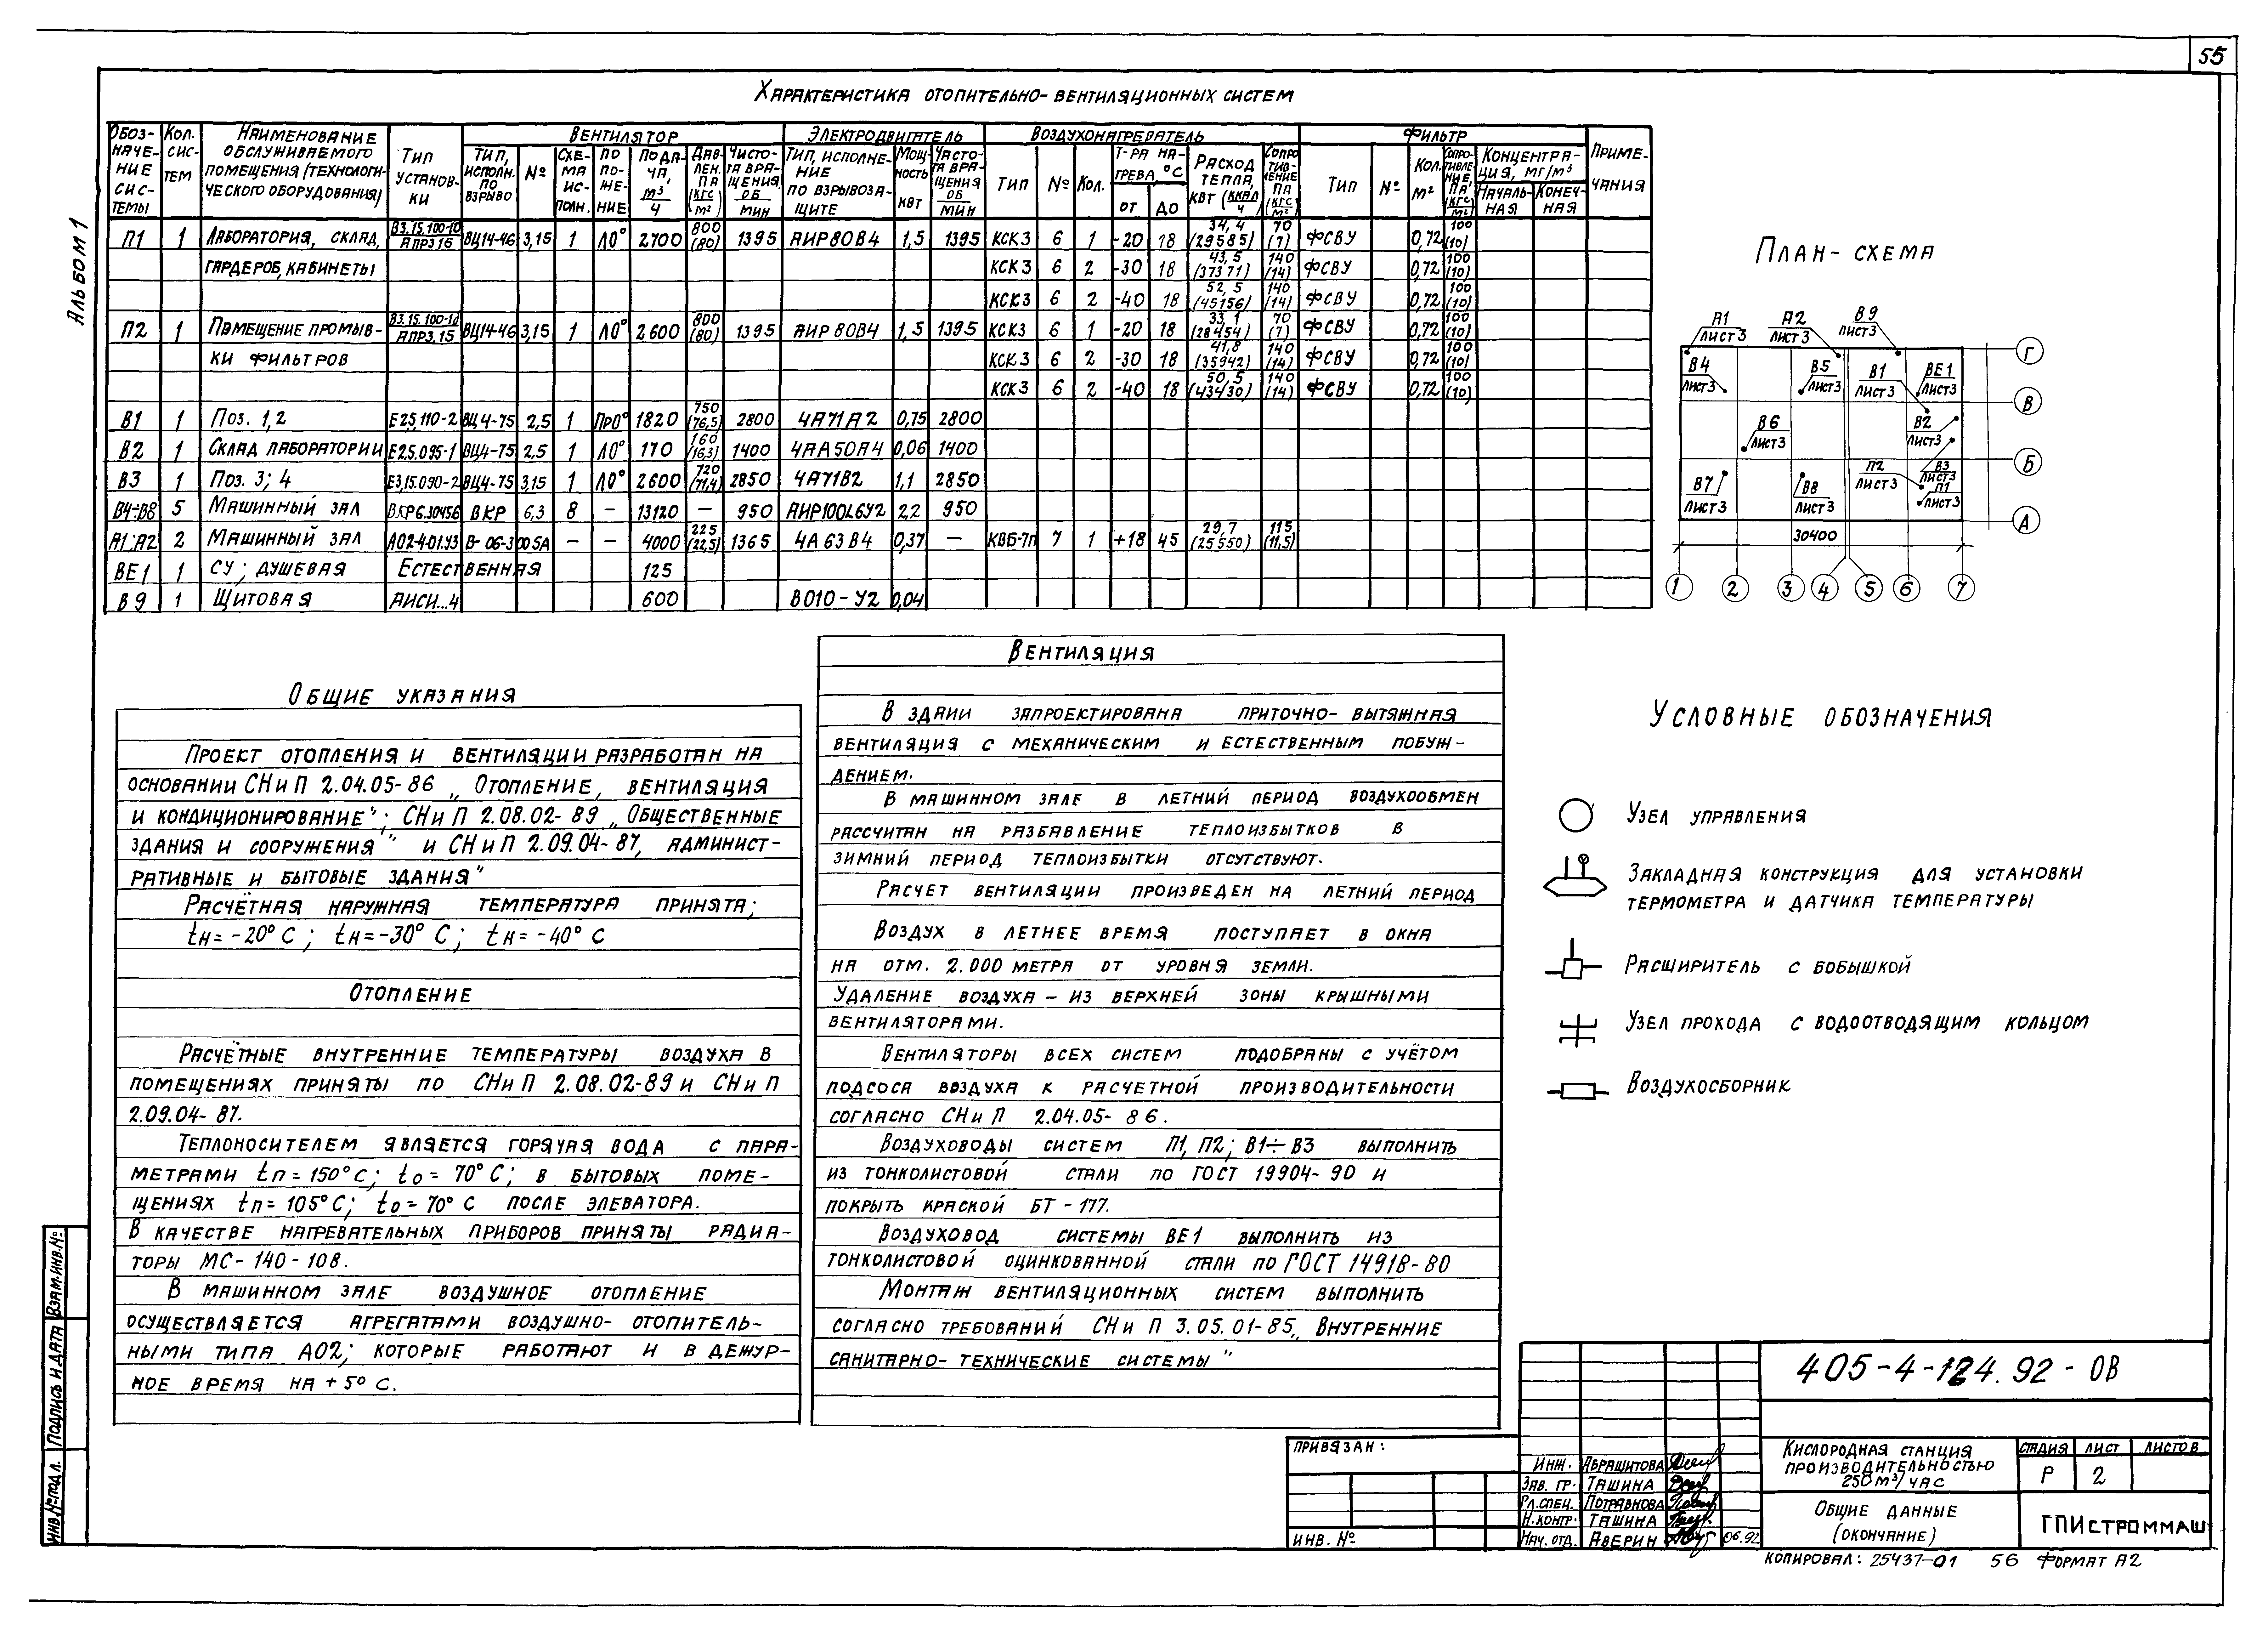 55
Альбом 1
Характеристика отопительно-вентиляционных систем
Обозначение системы | Кол. систем | Наименование обслуживаемого помещения (технологического оборудования) | Тип установки | Вентилятор | Электродвигатель | Воздухонагреватель | Фильтр | Примечания
Тип, исполн. по взрыво | № | Схема исполн. | Положение | Подача, м³/ч | Давлен. Па (кгс/м²) | Чистота вращения об/мин | Тип, исполнение по взрывозащите | Мощность кВт | Частота вращения об/мин | Тип | № | Кол. | Т-ра нагрева, °С от до | Расход тепла, кВт (ккал/ч) | Сопротивление Па (кгс/м²) | Тип | № | Кол. м² | Сопротивление Па, (кгс/м²) | Концентрация, мг/м³ Начальная Конечная
П1 | 1 | Лаборатория, склад, | В3.15.100-10 АПР3 15 | ВЦ14-46 | 3,15 | 1 | Л0° | 2700 | 800 (80) | 1395 | АИР80В4 | 1,5 | 1395 | КСК3 | 6 | 1 | -20 | 18 | 34,4 (29585) | 70 (7) | ФСВУ | 0,72 | 100 (10)
гардероб, кабинеты | КСК3 | 6 | 2 | -30 | 18 | 43,5 (37371) | 140 (14) | ФСВУ | 0,72 | 100 (10)
КСК3 | 6 | 2 | -40 | 18 | 52,5 (45156) | 140 (14) | ФСВУ | 0,72 | 100 (10)
П2 | 1 | Помещение промыв- | В3.15.100-10 АПР3.15 | ВЦ14-46 | 3,15 | 1 | Л0° | 2600 | 800 (80) | 1395 | АИР 80В4 | 1,5 | 1395 | КСК3 | 6 | 1 | -20 | 18 | 33,1 (28454) | 70 (7) | ФСВУ | 0,72 | 100 (10)
ки фильтров | КСК3 | 6 | 2 | -30 | 18 | 41,8 (35942) | 140 (14) | ФСВУ | 0,72 | 100 (10)
КСК3 | 6 | 2 | -40 | 18 | 50,5 (43430) | 140 (14) | ФСВУ | 0,72 | 100 (10)
В1 | 1 | Поз. 1,2 | Е2,5,110-2 | ВЦ4-75 | 2,5 | 1 | Пр0° | 1820 | 750 (76,5) | 2800 | 4А71А2 | 0,75 | 2800
В2 | 1 | Склад лаборатории | Е2.5.095-1 | ВЦ4-75 | 2,5 | 1 | Л0° | 170 | 160 (16,3) | 1400 | 4АА50А4 | 0,06 | 1400
В3 | 1 | Поз. 3; 4 | Е3,15.090-2 | ВЦ4-75 | 3,15 | 1 | Л0° | 2600 | 720 (71,4) | 2850 | 4А71В2 | 1,1 | 2850
В4÷В8 | 5 | Машинный зал | ВКР6.30456 | ВКР | 6,3 | 8 | – | 13120 | – | 950 | АИР100L6У2 | 2,2 | 950
А1;А2 | 2 | Машинный зал | А02-4-01.У3 | В-06-300 5А | – | – | 4000 | 225 (22,5) | 1365 | 4А63В4 | 0,37 | – | КВБ-7п | 7 | 1 | +18 | 45 | 29,7 (25550) | 115 (11,5)
ВЕ1 | 1 | СУ; душевая | Естественная | 125
В9 | 1 | Щитовая | АИСИ...4 | 600 | В010-У2 | 0,04
План-схема
А1 лист3
А2 лист3
В9 лист3
В4 лист3
В5 лист3
В1 лист3
ВЕ1 лист3
В6 лист3
В2 лист3
В7 лист3
В8 лист3
П2 лист3
В3 лист3
П1 лист3
Г
В
Б
А
30400
1 2 3 4 5 6 7
Общие указания
Проект отопления и вентиляции разработан на
основании СНиП 2.04.05-86 „Отопление, вентиляция
и кондиционирование"; СНиП 2.08.02-89 „Общественные
здания и сооружения" и СНиП 2.09.04-87, админист-
ративные и бытовые здания"
Расчётная наружная температура принята;
tн=-20°С; tн=-30°С; tн=-40°С
Отопление
Расчётные внутренние температуры воздуха в
помещениях приняты по СНиП 2.08.02-89 и СНиП
2.09.04-87.
Теплоносителем является горячая вода с пара-
метрами tп=150°С; to=70°С; в бытовых поме-
щениях tп=105°С; to=70°С после элеватора.
В качестве нагревательных приборов приняты радиа-
торы МС-140-108.
В машинном зале воздушное отопление
осуществляется агрегатами воздушно-отопитель-
ными типа АО2; которые работают и в дежур-
ное время на +5°С.
Вентиляция
В здаии запроектирована приточно-вытяжная
вентиляция с механическим и естественным побуж-
дением.
В машинном зале в летний период воздухообмен
рассчитан на разбавление теплоизбытков в
зимний период теплоизбытки отсутствуют.
Расчет вентиляции произведен на летний период
Воздух в летнее время поступает в окна
на отм. 2.000 метра от уровня земли.
Удаление воздуха – из верхней зоны крышными
вентиляторами.
Вентиляторы всех систем подобраны с учётом
подсоса воздуха к расчетной производительности
согласно СНиП 2.04.05-86.
Воздуховоды систем П1, П2; В1÷В3 выполнить
из тонколистовой стали по ГОСТ 19904-90 и
покрыть краской БТ-177.
Воздуховод системы ВЕ1 выполнить из
тонколистовой оцинкованной стали по ГОСТ 14918-80
Монтаж вентиляционных систем выполнить
согласно требований СНиП 3.05.01-85„ Внутренние
санитарно-технические системы"
Условные обозначения
Узел управления
Закладная конструкция для установки
термометра и датчика температуры
Расширитель с бобышкой
Узел прохода с водоотводящим кольцом
Воздухосборник
Инв.№ подл. Подпись и дата Взам.инв.№
Привязан:
Инв. №
405-4-124.92-ОВ
Инж. Абрашитова
Зав. гр. Ташина
Гл.спец. Потравнова
Н.контр. Ташина
Нач. отд. Аверин 06.92
Кислородная станция
производительностью
250м³/час
Стадия Лист Листов
Р 2
Общие данные
(окончание)
ГПИстроммаш
Копировал: 25437-01 56 Формат А2